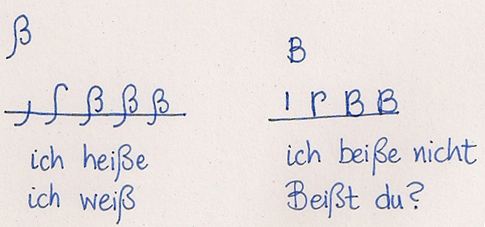 ß
ß ß ß
ich heiße
ich weiß
B
B B
ich beiße nicht
Beißt du?